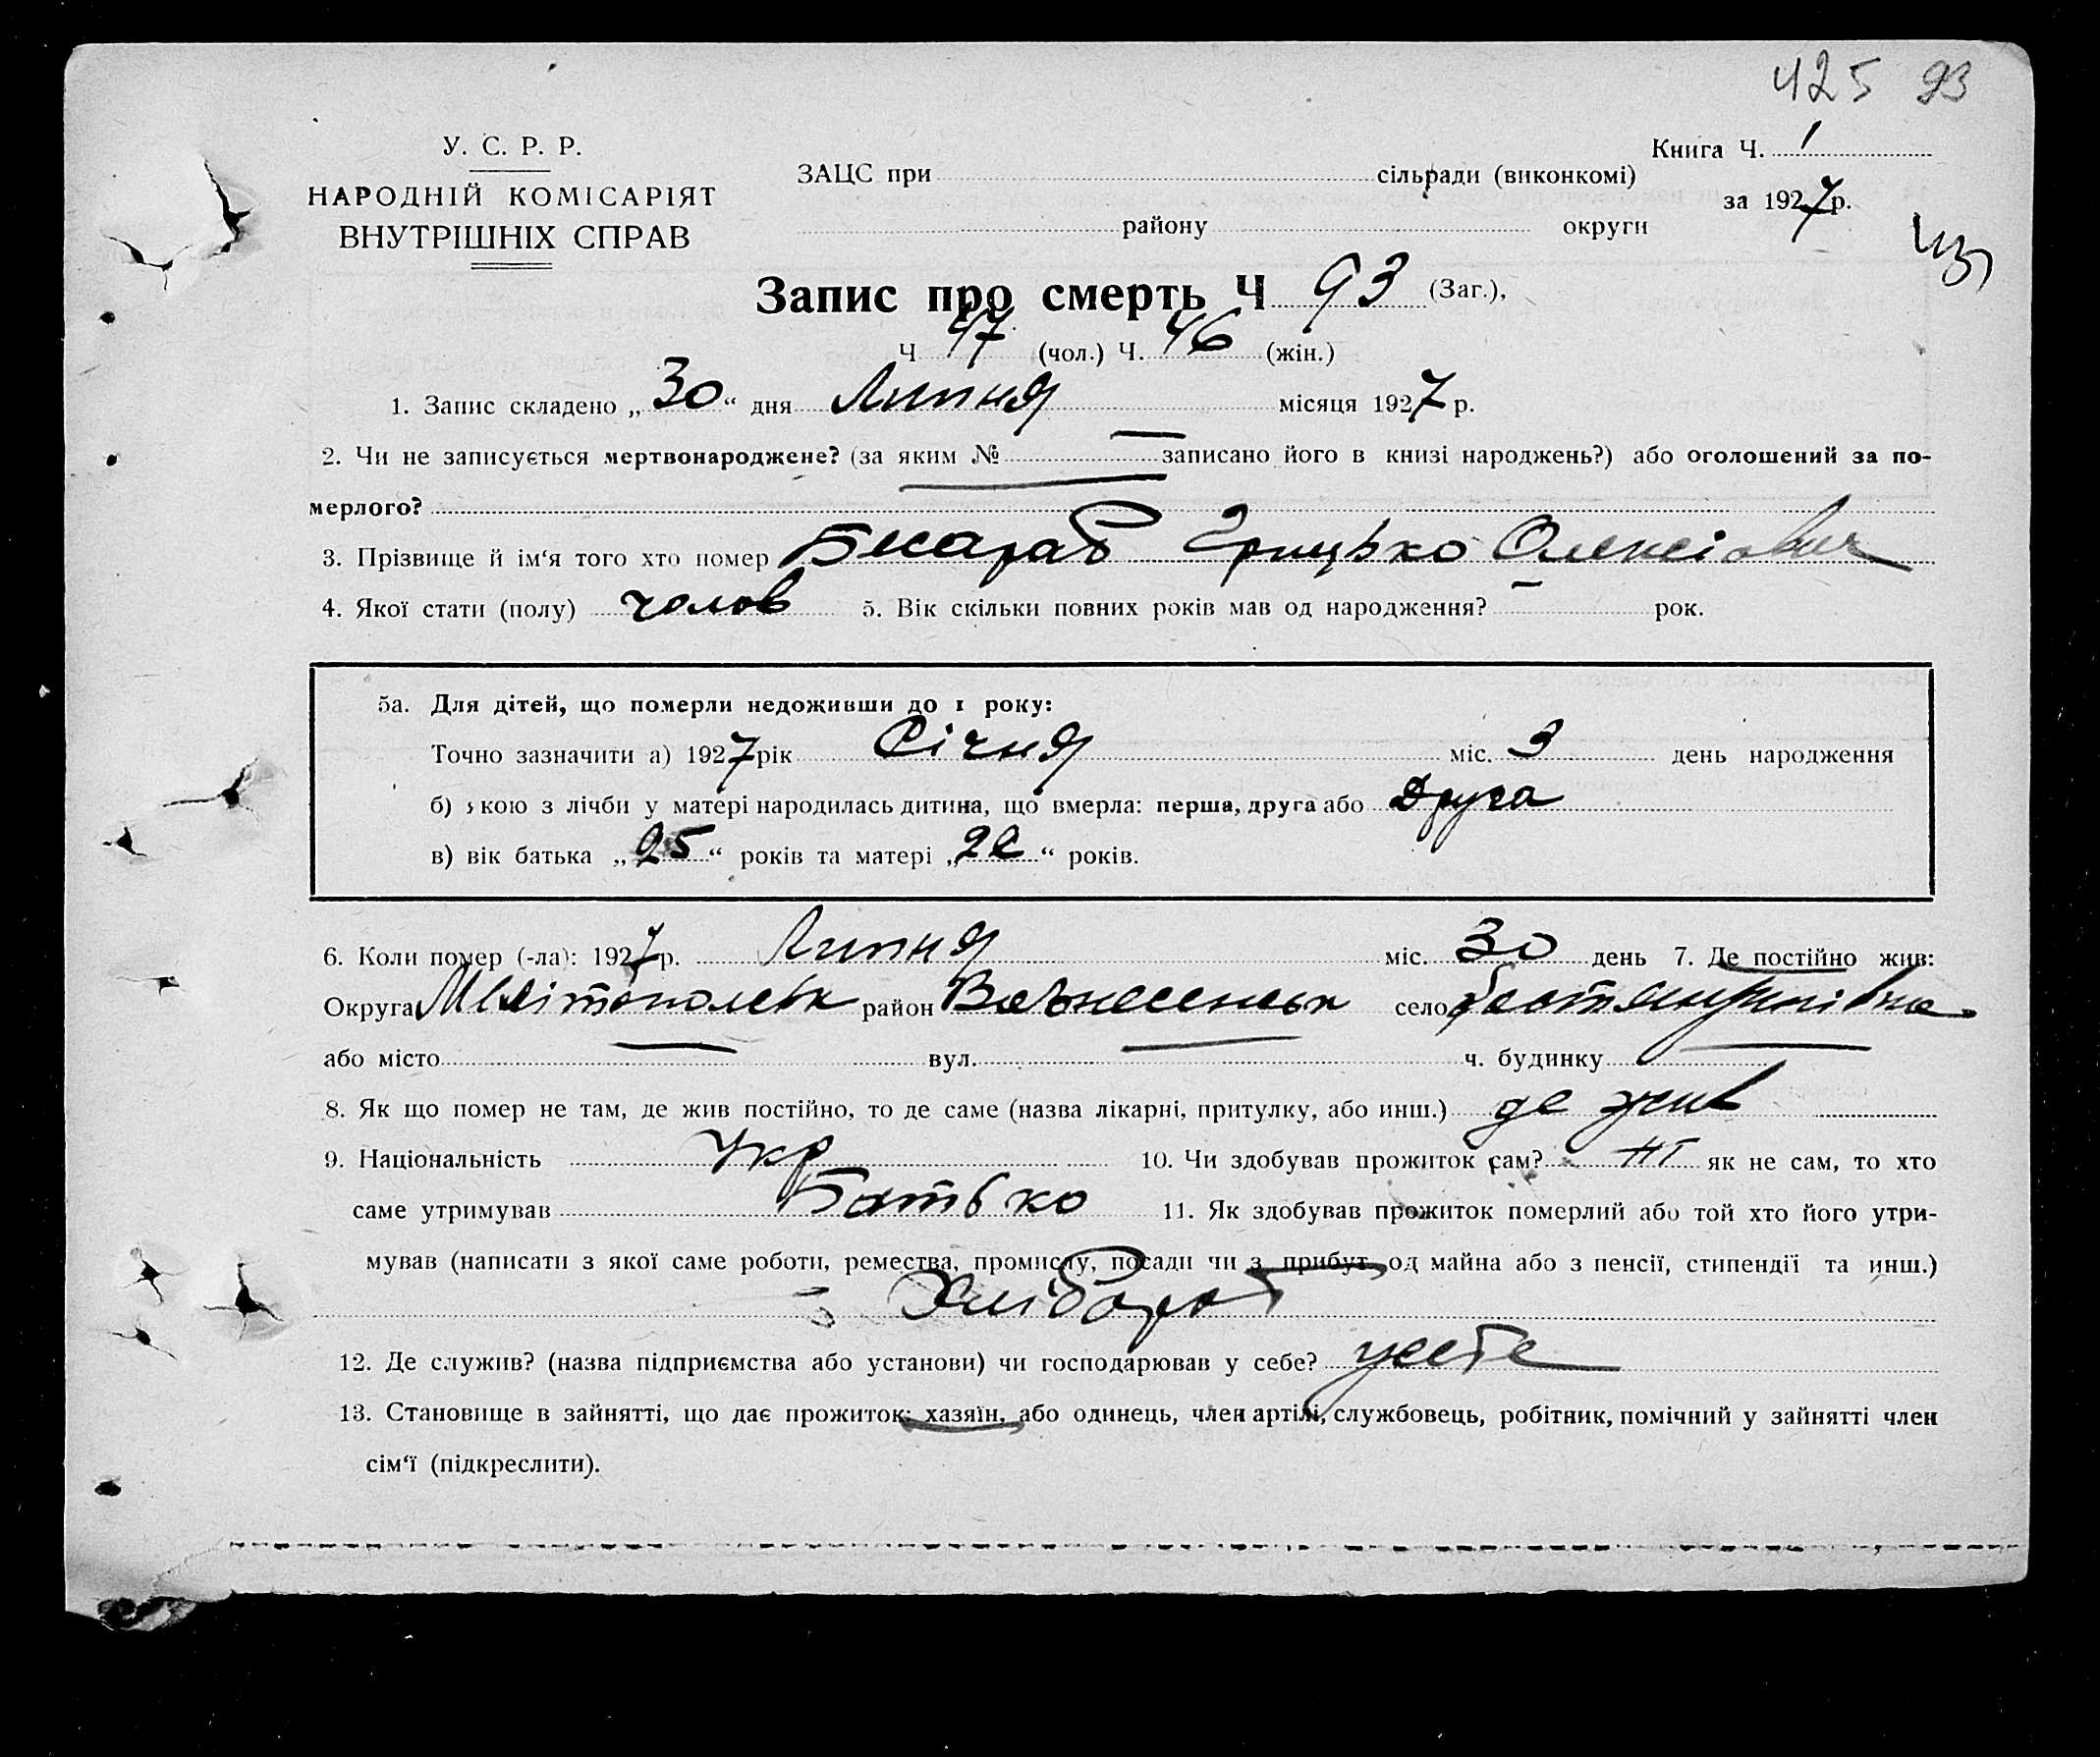 425 93
У. С. Р. Р.
НАРОДНІЙ КОМІСАРІЯТ
ВНУТРІШНІХ СПРАВ
Книга Ч. 1
за 1927 р.
ЗАЦС при сільради (виконкомі)
району округи
Запис про смерть Ч 93 (Заг.),
Ч 47 (чол.) Ч. 46 (жін.)
1. Запис складено „30“ дня Липня місяця 1927 р.
2. Чи не записується мертвонароджене? (за яким № — записано його в книзі народжень?) або оголошений за по-
мерлого?
3. Прізвище й ім‘я того хто помер Бесараб Грицько Олексіович
4. Якої стати (полу) чолов 5. Вік скільки повних років мав од народження? — рок.
5а. Для дітей, що померли недоживши до 1 року:
Точно зазначити а) 1927 рік Січня міс. 3 день народження
б) якою з лічби у матері народилась дитина, що вмерла: перша, друга або Друга
в) вік батька „25“ років та матері „22“ років.
6. Коли помер (-ла): 1927 р. Липня міс. 30 день 7. Де постійно жив:
Округа Мелітопольськ район Вознесенськ село
або місто — вул. — ч. будинку —
8. Як що помер не там, де жив постійно, то де саме (назва лікарні, притулку, або инш.) де жив
9. Національність Укр 10. Чи здобував прожиток сам? ні як не сам, то хто
саме утримував Батько 11. Як здобував прожиток померлий або той хто його утри-
мував (написати з якої саме роботи, ремества, промислу, посади чи з прибут. од майна або з пенсії, стипендії та инш.)
Хлібороб
12. Де служив? (назва підприємства або установи) чи господарював у себе? у себе
13. Становище в зайнятті, що дає прожиток: хазяїн, або одинець, член артілі, службовець, робітник, помічний у зайнятті член
сім‘ї (підкреслити).